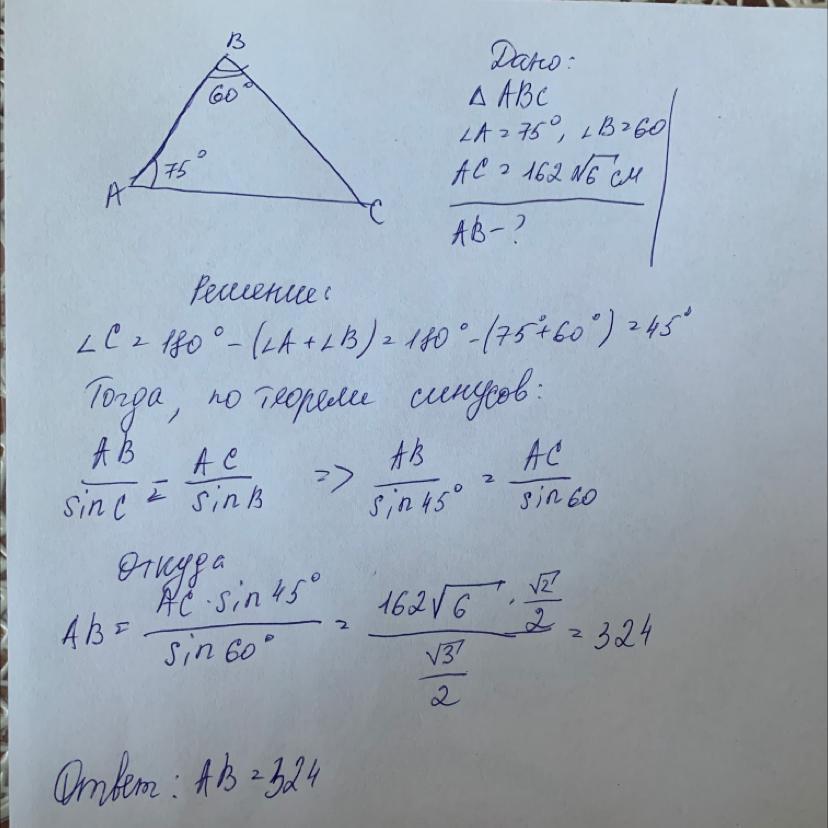 B
60°
75°
A
C
Дано:
△ ABC
∠A = 75°, ∠B = 60
AC = 162√6 см
AB - ?
Решение:
∠C = 180° - (∠A + ∠B) = 180° - (75° + 60°) = 45°
Тогда, по теореме синусов:
AB/sin C = AC/sin B => AB/sin 45° = AC/sin 60
Откуда
AB = AC · sin 45°/sin 60° = (162√6 · √2/2)/(√3/2) = 324
Ответ: AB = 324